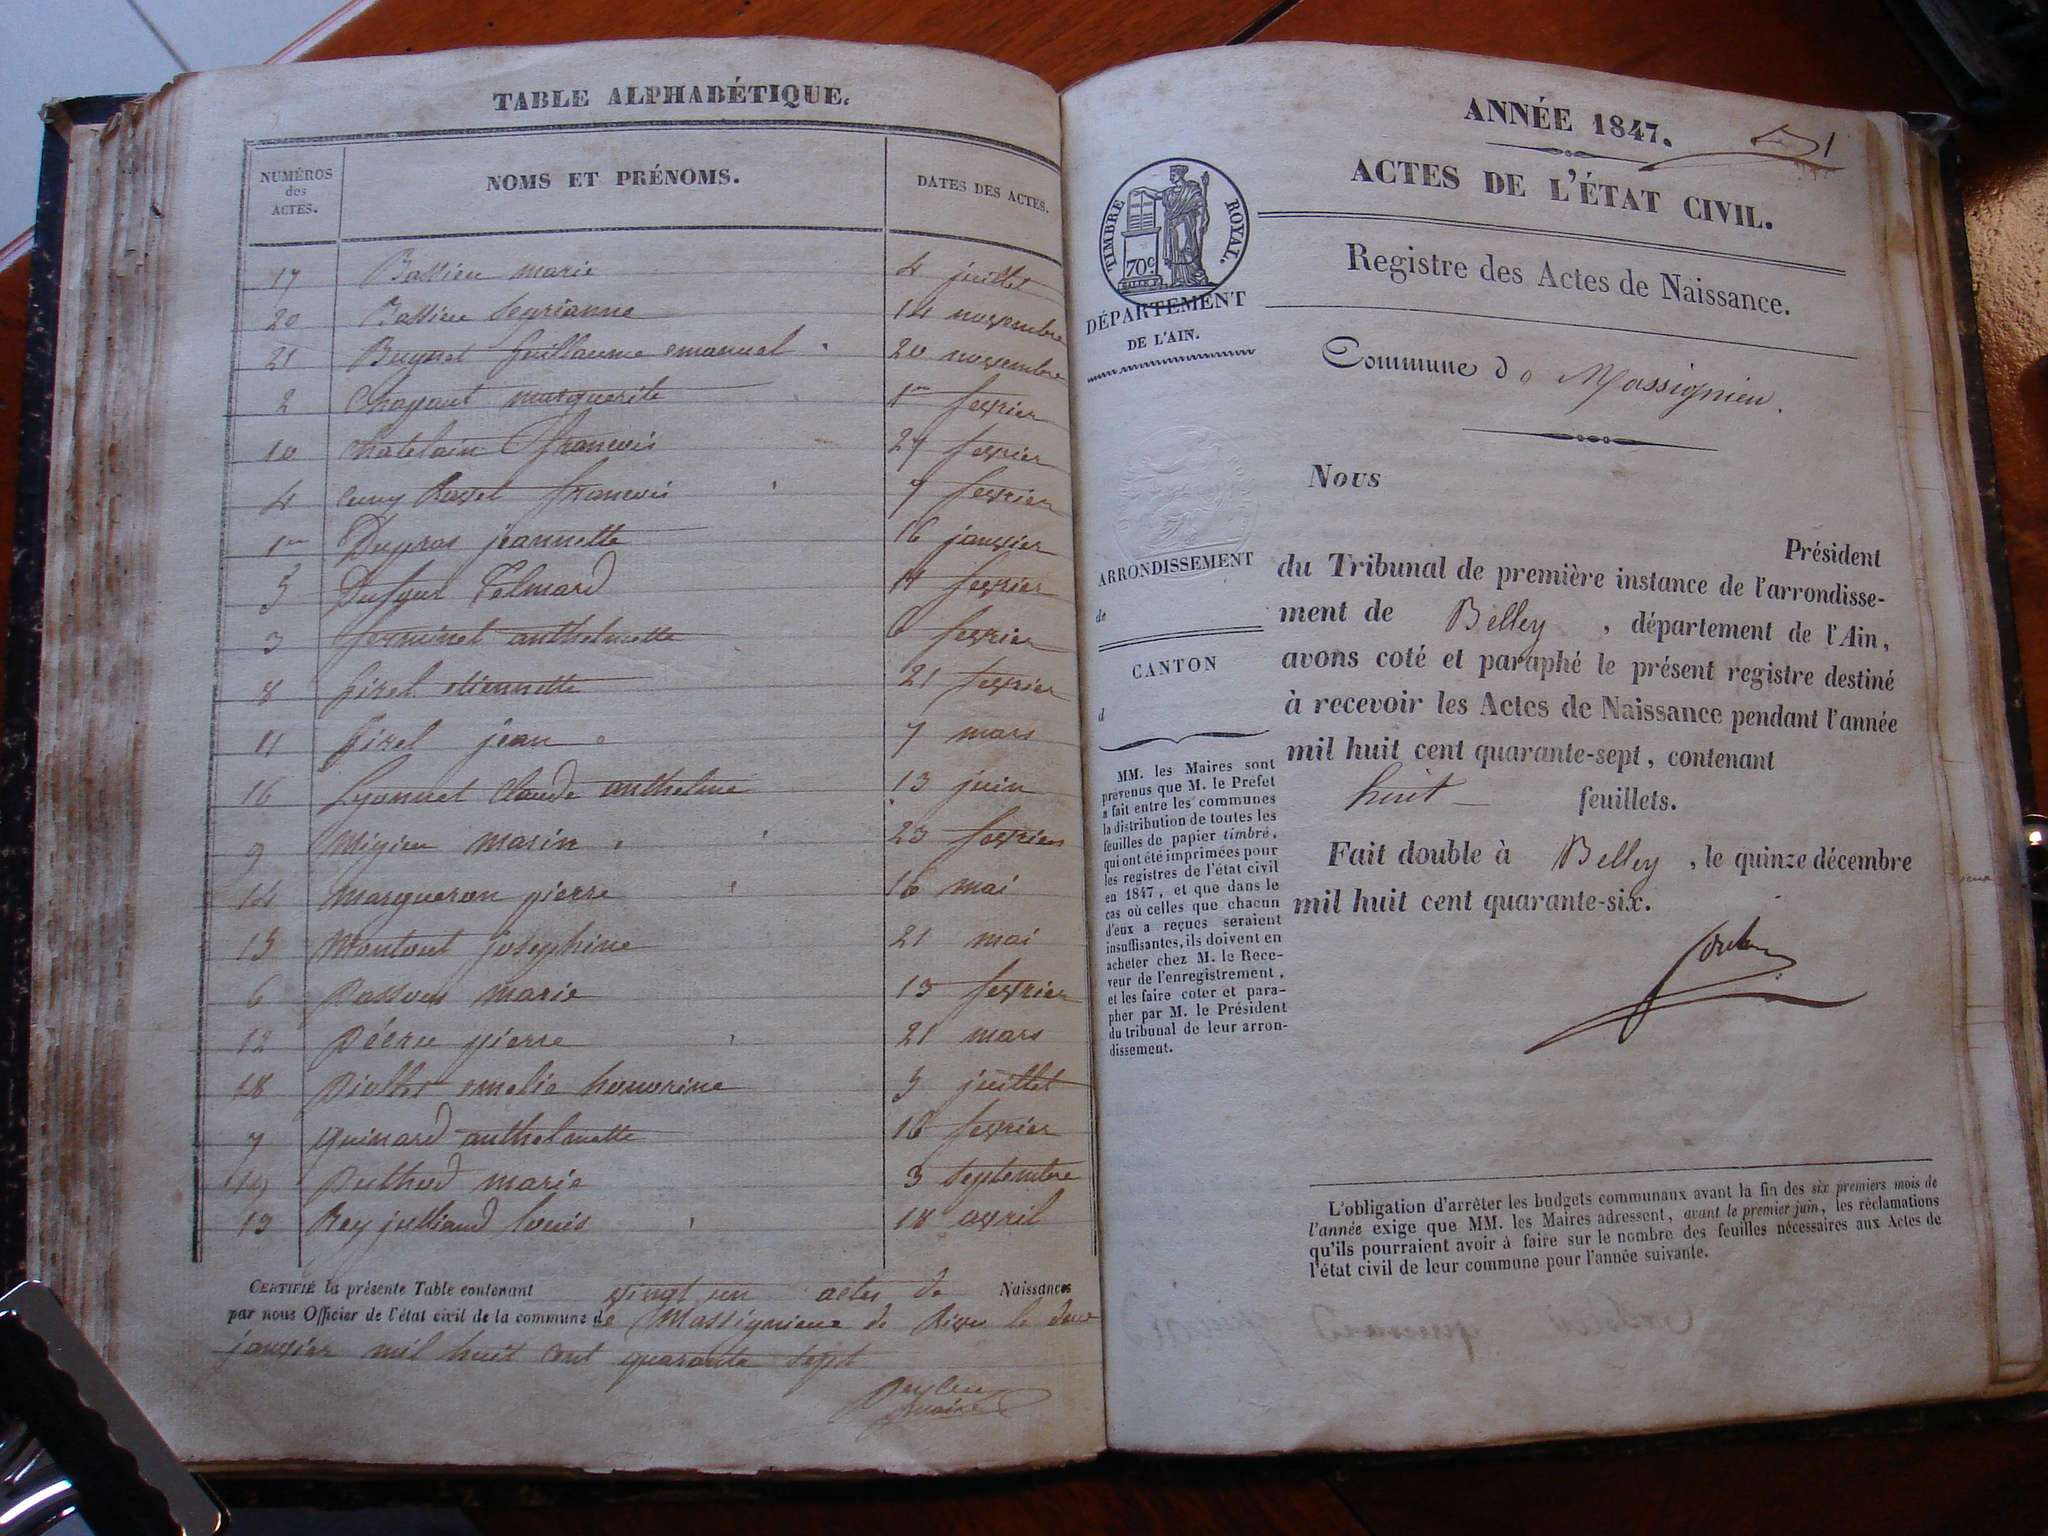 TABLE ALPHABÉTIQUE.
NUMÉROS des ACTES. NOMS ET PRÉNOMS. DATES DES ACTES.
17 Bassieu marie 4 juillet
20 Bassieu 14 novembre
21 guillaume emanuel 20 novembre
2 marguerite 1er fevrier
10 Chatelain francois 27 fevrier
4 francois 7 fevrier
1er Dupras jeannette 16 janvier
5 Dufour 14 fevrier
3 anthelmette 6 fevrier
8 girel etiennette 21 fevrier
11 girel jean 7 mars
16 Lyonnet Claude anthelme 13 juin
9 Migieu marin 23 fevrier
14 Margueron pierre 16 mai
15 josephine 21 mai
6 marie 15 fevrier
12 pierre 21 mars
18 emelie honorine 5 juillet
7 quinard anthelmette 16 fevrier
19 marie 3 septembre
13 Rey julliand louis 18 avril
CERTIFIÉ la présente Table contenant vingt un actes de Naissances
par nous Officier de l'état civil de la commune de Massignieu de Rives le deux
janvier mil huit cent quarante sept
maire
ANNÉE 1847.
1
ACTES DE L'ÉTAT CIVIL.
TIMBRE ROYAL.
70c
DÉPARTEMENT
DE L'AIN.
Registre des Actes de Naissance.
Commune de Massignieu.
Nous
Président
ARRONDISSEMENT
de
CANTON
d
du Tribunal de première instance de l'arrondisse-
ment de Belley, département de l'Ain,
avons coté et paraphé le présent registre destiné
à recevoir les Actes de Naissance pendant l'année
mil huit cent quarante-sept, contenant
huit feuillets.
Fait double à Belley, le quinze décembre
mil huit cent quarante-six.
MM. les Maires sont
prévenus que M. le Préfet
a fait entre les communes
la distribution de toutes les
feuilles de papier timbré,
qui ont été imprimées pour
les registres de l'état civil
en 1847, et que dans le
cas où celles que chacun
d'eux a reçues seraient
insuffisantes, ils doivent en
acheter chez M. le Rece-
veur de l'enregistrement,
et les faire coter et para-
pher par M. le Président
du tribunal de leur arron-
dissement.
L'obligation d'arrêter les budgets communaux avant la fin des six premiers mois de
l'année exige que MM. les Maires adressent, avant le premier juin, les réclamations
qu'ils pourraient avoir à faire sur le nombre des feuilles nécessaires aux Actes de
l'état civil de leur commune pour l'année suivante.